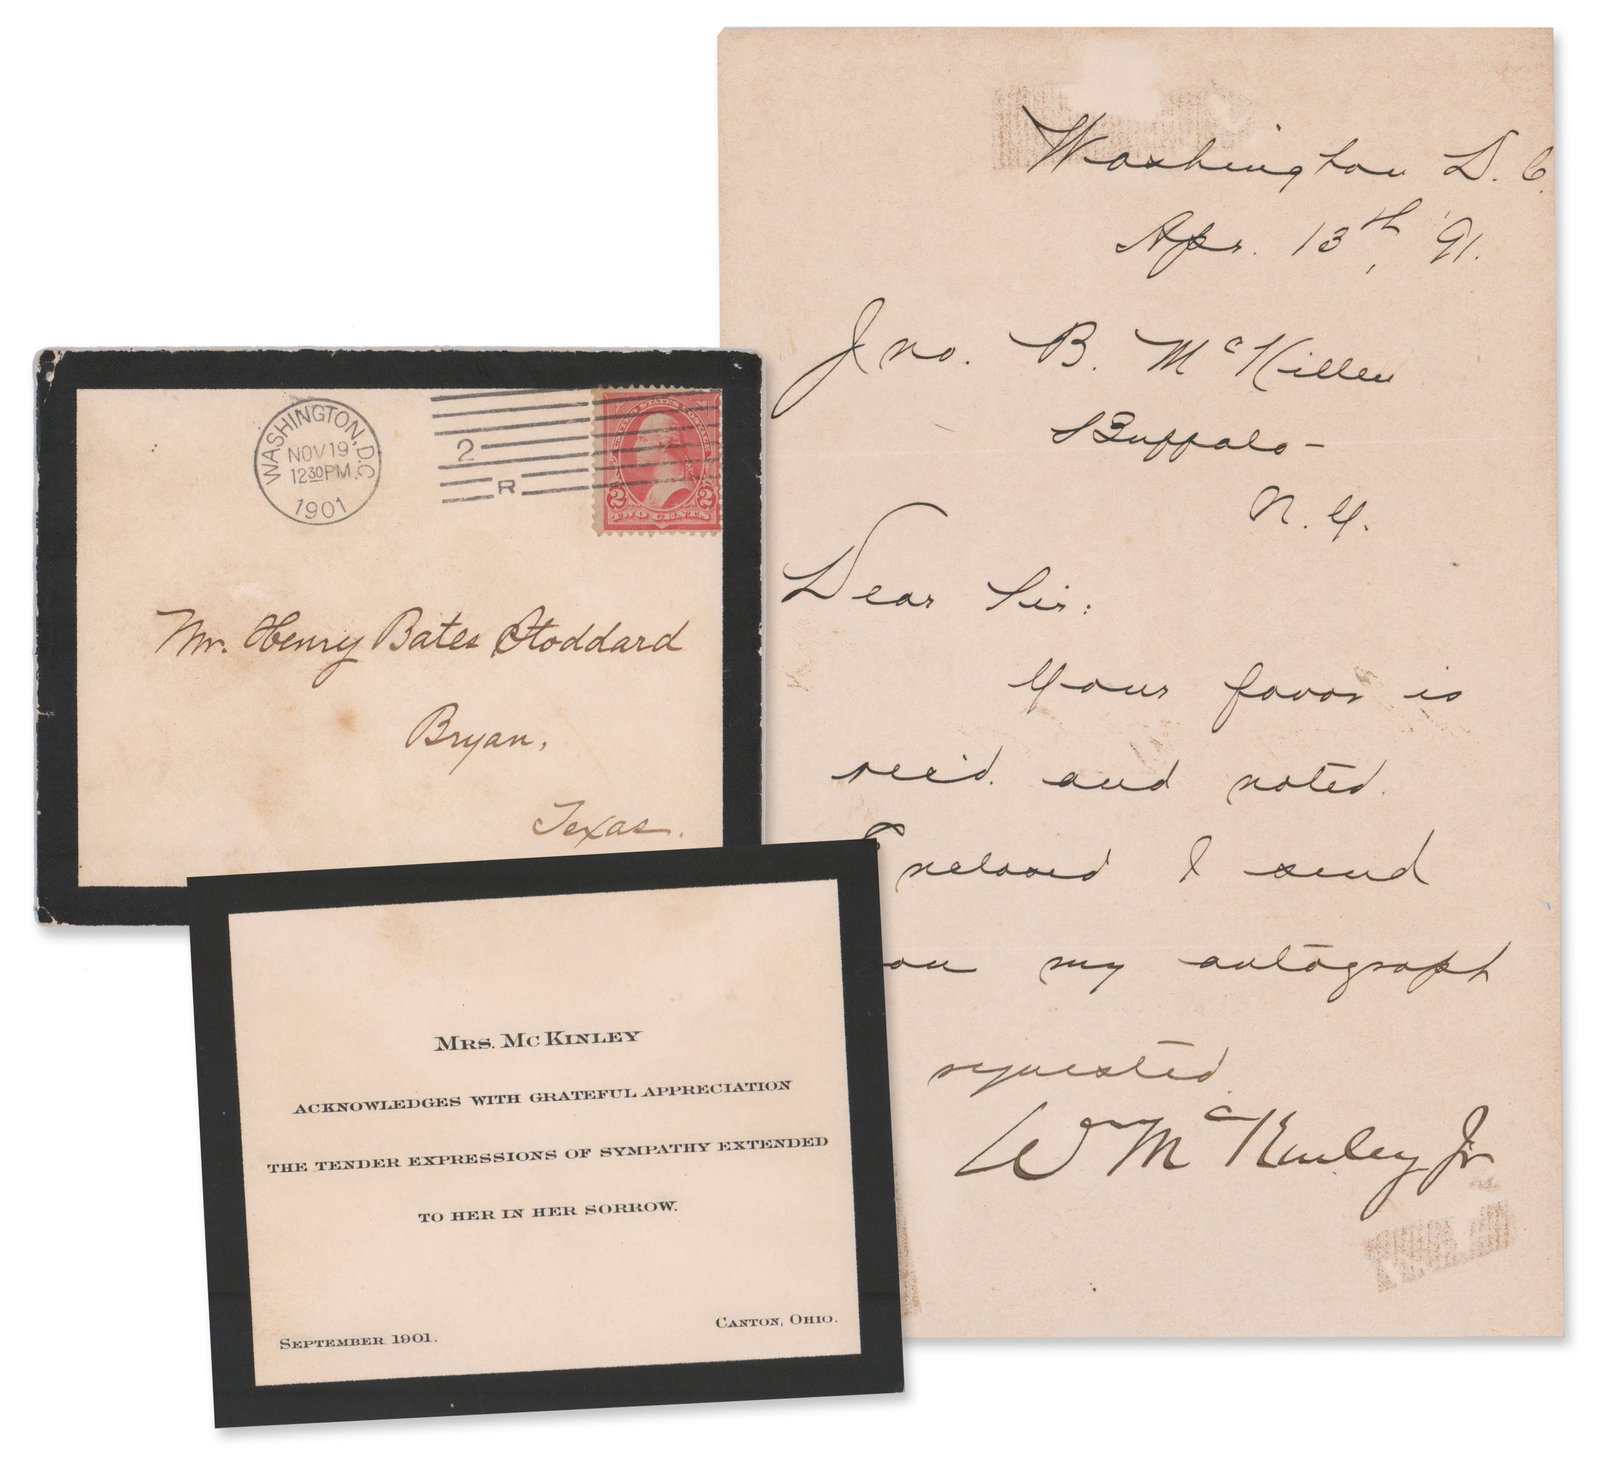 WASHINGTON, D.C.
NOV 19
12 30 PM
1901
2
R
2 2
TWO CENTS
Mr. Henry Bates Stoddard
Bryan,
Texas.
MRS. MCKINLEY
ACKNOWLEDGES WITH GRATEFUL APPRECIATION
THE TENDER EXPRESSIONS OF SYMPATHY EXTENDED
TO HER IN HER SORROW.
SEPTEMBER 1901.
CANTON, OHIO.
Washington D. C.
Apr. 13th, '91.
Jno. B. McKillen
Buffalo -
N. Y.
Dear Sir:
Your favor is
rec'd. and noted.
Enclosed I send
you my autograph
requested.
Wm McKinley Jr